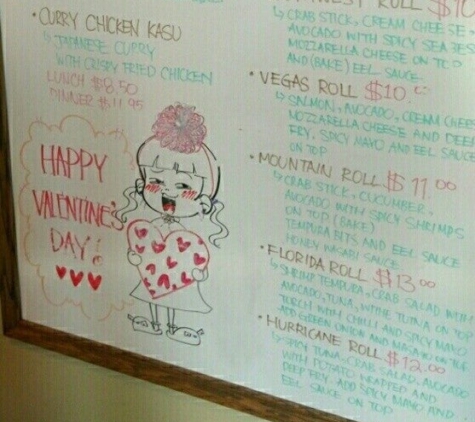 • CURRY CHICKEN KASU
↳ JAPANESE CURRY
WITH CRISPY FRIED CHICKEN
LUNCH $8.50
DINNER $11.95
HAPPY
VALENTINE'S
DAY!
ROLL $10
↳ CRAB STICK, CREAM CHEESE
AVOCADO WITH SPICY
MOZZARELLA CHEESE ON TOP
AND (BAKE) EEL SAUCE.
• VEGAS ROLL $10.00
↳ SALMON, AVOCADO, CREAM CHEES
MOZZARELLA CHEESE AND DEEP
FRY. SPICY MAYO AND EEL SAUCE
ON TOP
• MOUNTAIN ROLL $11.00
↳ CRAB STICK, CUCUMBER,
AVOCADO WITH SPICY SHRIMPS
ON TOP. (BAKE)
TEMPURA BITS AND EEL SAUCE
HONEY WASABI SAUCE
• FLORIDA ROLL $13.00
↳ SHRIMP TEMPURA, CRAB SALAD WITH
AVOCADO, TUNA, WHITE TUNA ON TOP
TORCH WITH CHILLI AND SPICY MAYO
ADD GREEN ONION AND MASAGO ON TOP
• HURRICANE ROLL $12.00
↳ SPICY TUNA, CRAB SALAD, AVOCADO
WITH POTATO WRAPPED AND
DEEP FRY. ADD SPICY MAYO AND
EEL SAUCE ON TOP